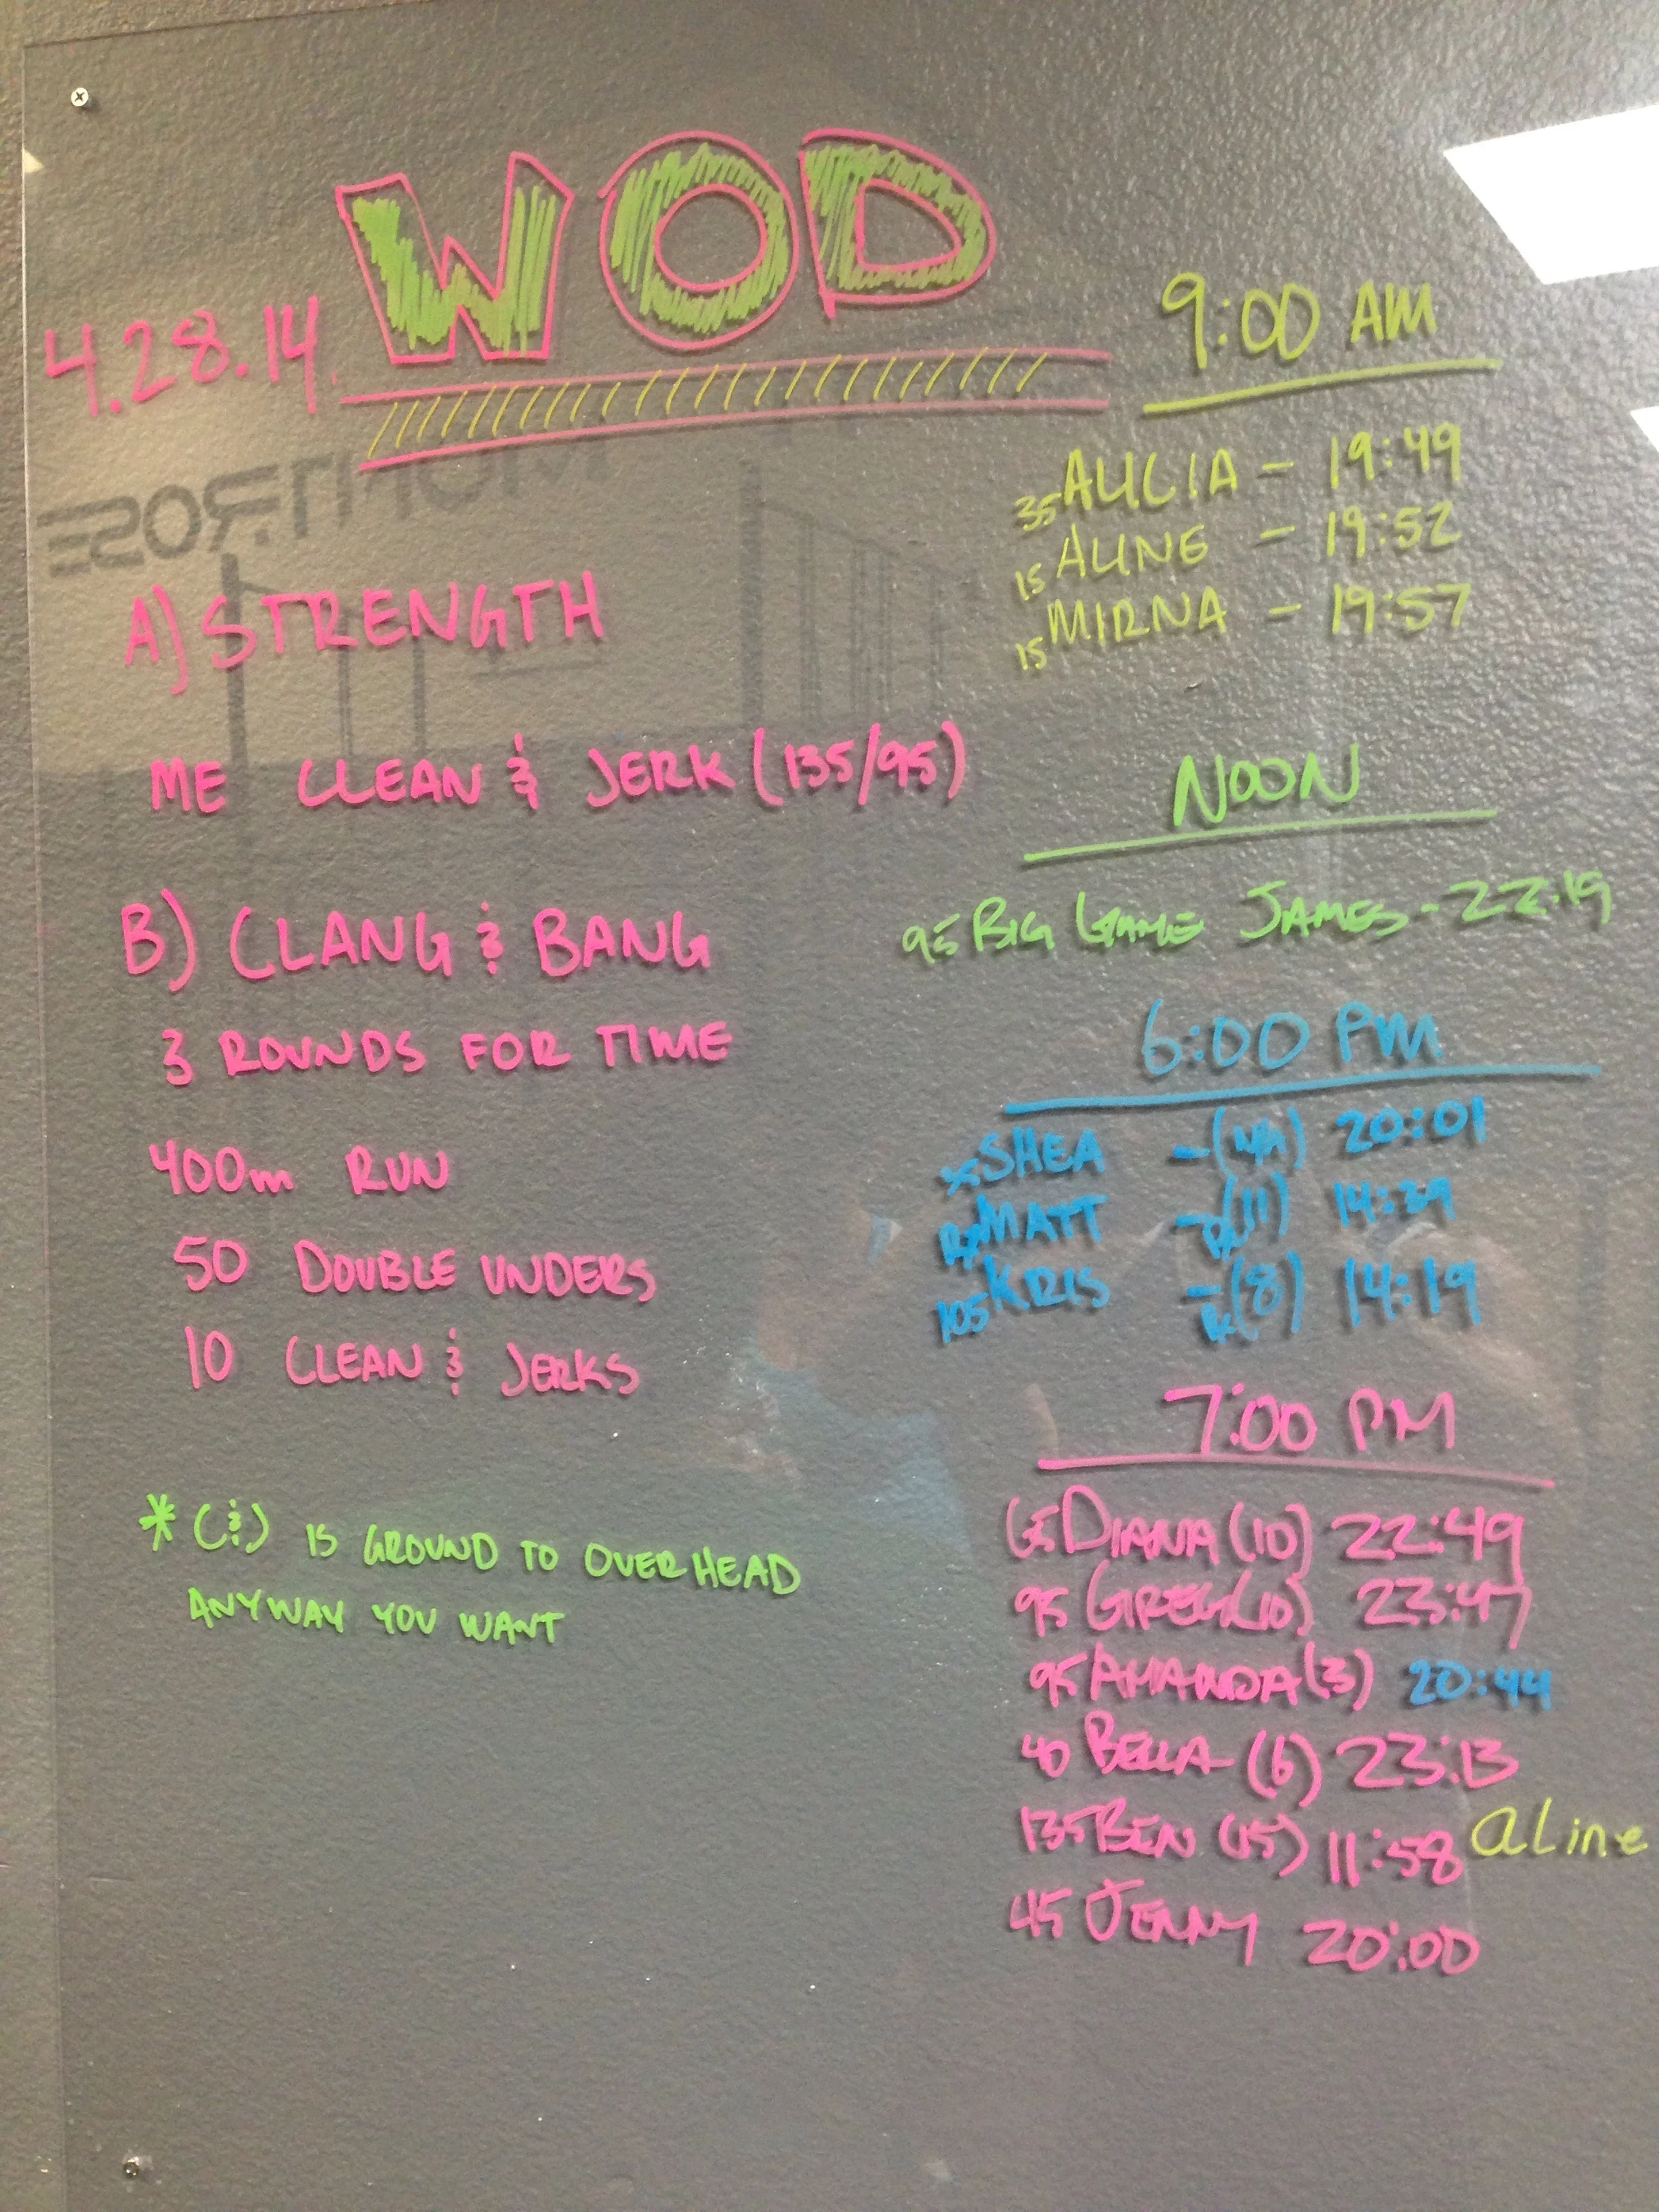 WOD
4.28.14.
A) STRENGTH
ME CLEAN & JERK (135/95)
B) CLANG & BANG
3 ROUNDS FOR TIME
400m RUN
50 DOUBLE UNDERS
10 CLEAN & JERKS
* (&) IS GROUND TO OVERHEAD
ANYWAY YOU WANT
9:00 AM
35 ALICIA - 19:49
15 ALINE - 19:52
15 MIRNA - 19:57
NOON
95 BIG GAME JAMES - 22:19
6:00 PM
SHEA - 20:01
RX MATT - (11) 14:39
105 KRIS - (8) 14:19
7:00 PM
65 DIANA (10) 22:49
95 GREG (10) 23:47
95 AMANDA (3) 20:44
40 BELLA (6) 23:13
135 BEN (15) 11:58
aLine
45 JENNY 20:00